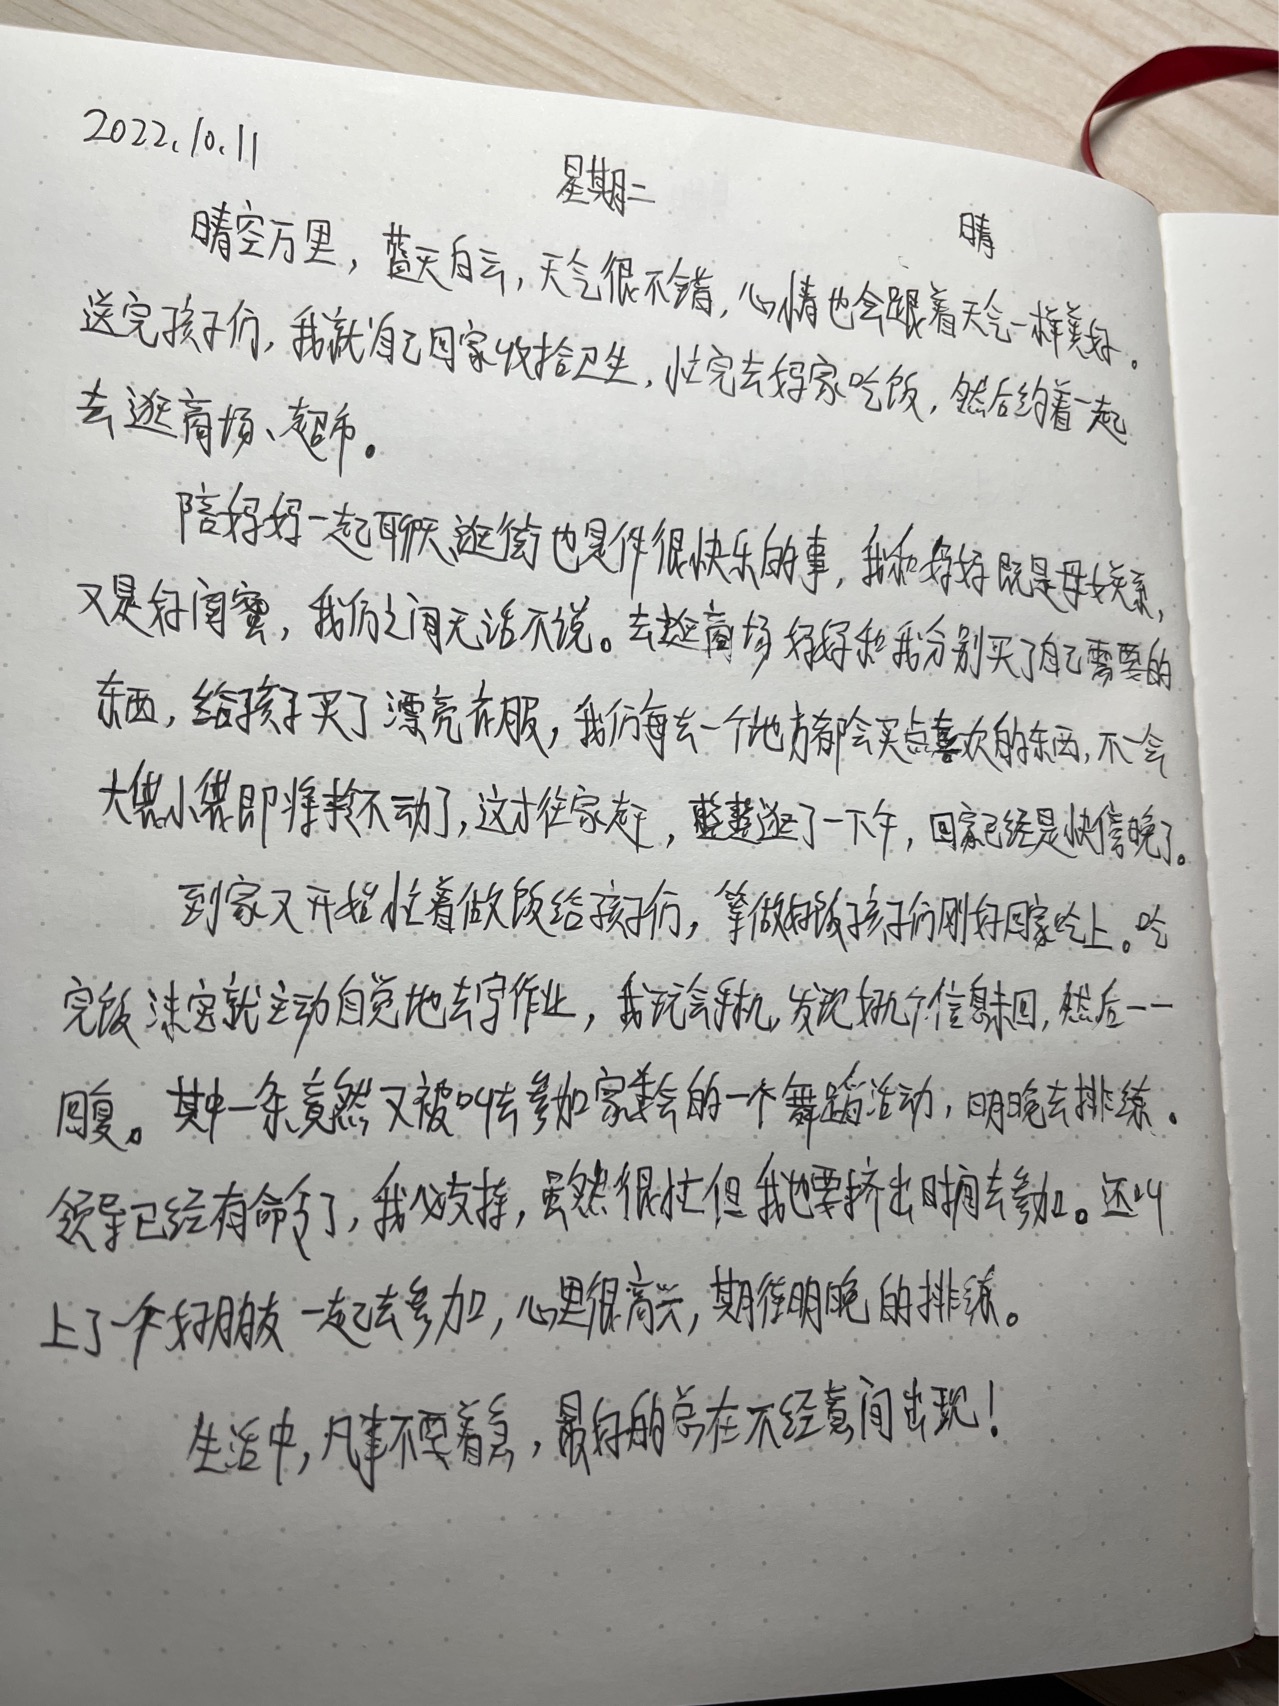 2022.10.11 星期二 晴
晴空万里，蓝天白云，天气很不错，心情也会跟着天气一样美好。
送完孩子们，我就自己回家收拾卫生，忙完去妈家吃饭，然后约着一起
去逛商场、超市。
陪妈妈一起聊天、逛街也是件很快乐的事，我和妈妈既是母女关系，
又是好闺蜜，我们之间无话不说。去逛商场妈妈和我分别买了自己需要的
东西，给孩子买了漂亮衣服，我们每去一个地方都会买点喜欢的东西，不一会
大袋小袋即将拎不动了，这才往家赶，整整逛了一下午，回家已经是快傍晚了。
到家又开始忙着做饭给孩子们，等做好饭孩子们刚好回家吃上。吃
完饭沫宝就主动自觉地去写作业，我玩会手机，发现好几个信息未回，然后一一
回复。其中一条竟然又被叫去参加家委会的一个舞蹈活动，明晚去排练。
领导已经有命令了，我必支持，虽然很忙但我也要挤出时间去参加。还叫
上了一个好朋友一起去参加，心里很高兴，期待明晚的排练。
生活中，凡事不要着急，最好的总在不经意间出现！